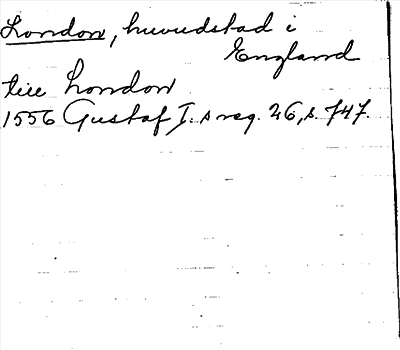 London, huvudstad i
England
till London
1556 Gustaf I.s reg. 26, s. 747.